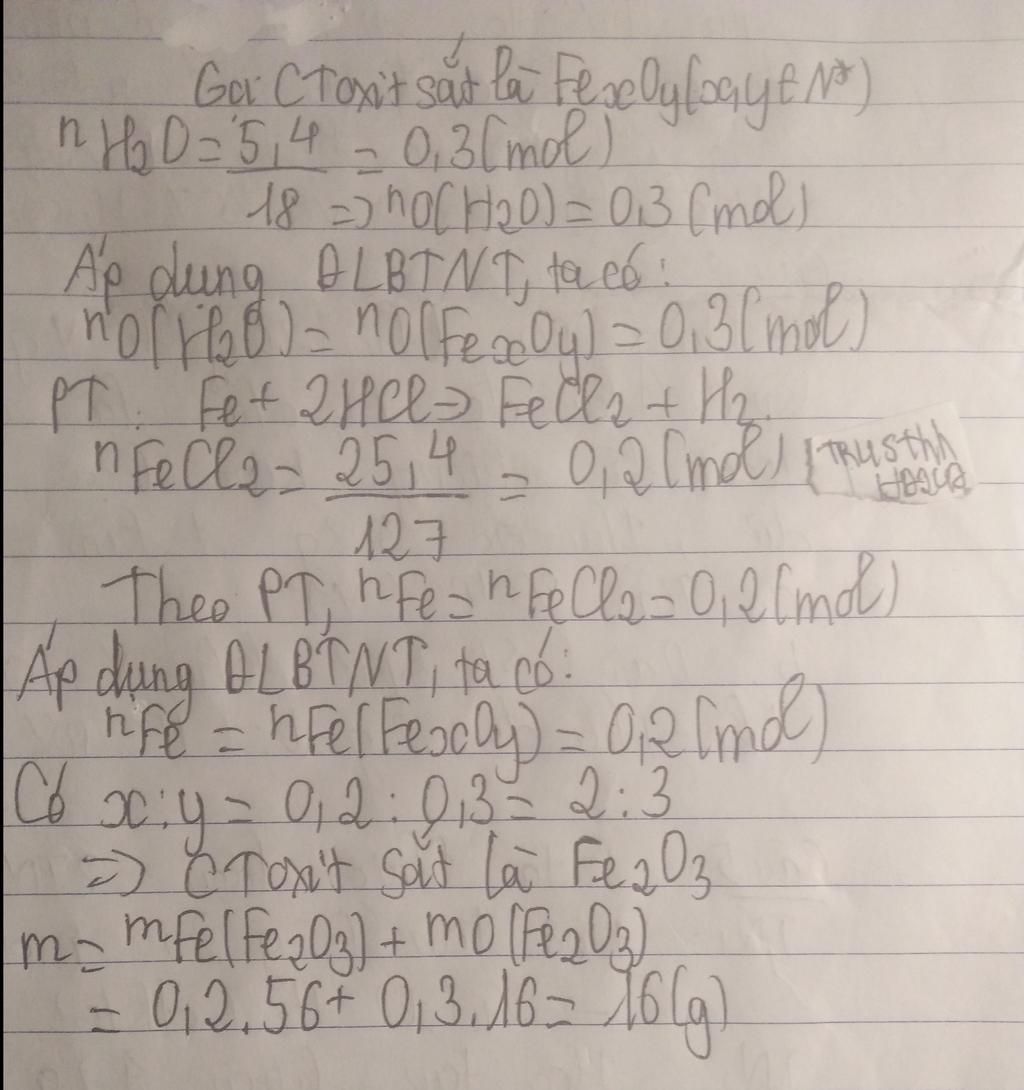 Gọi CT oxit sắt là FexOy (x,y ∈ N*)
nH2O = 5,4/18 = 0,3 (mol)
=> nO(H2O) = 0,3 (mol)
Áp dụng ĐLBTNT, ta có:
nO(H2O) = nO(FexOy) = 0,3 (mol)
PT: Fe + 2HCl → FeCl2 + H2
nFeCl2 = 25,4/127 = 0,2 (mol)
Theo PT, nFe = nFeCl2 = 0,2 (mol)
Áp dụng ĐLBTNT, ta có:
nFe = nFe(FexOy) = 0,2 (mol)
Có x:y = 0,2 : 0,3 = 2:3
=> CT oxit sắt là Fe2O3
m = mFe(Fe2O3) + mO(Fe2O3)
= 0,2.56 + 0,3.16 = 16(g)